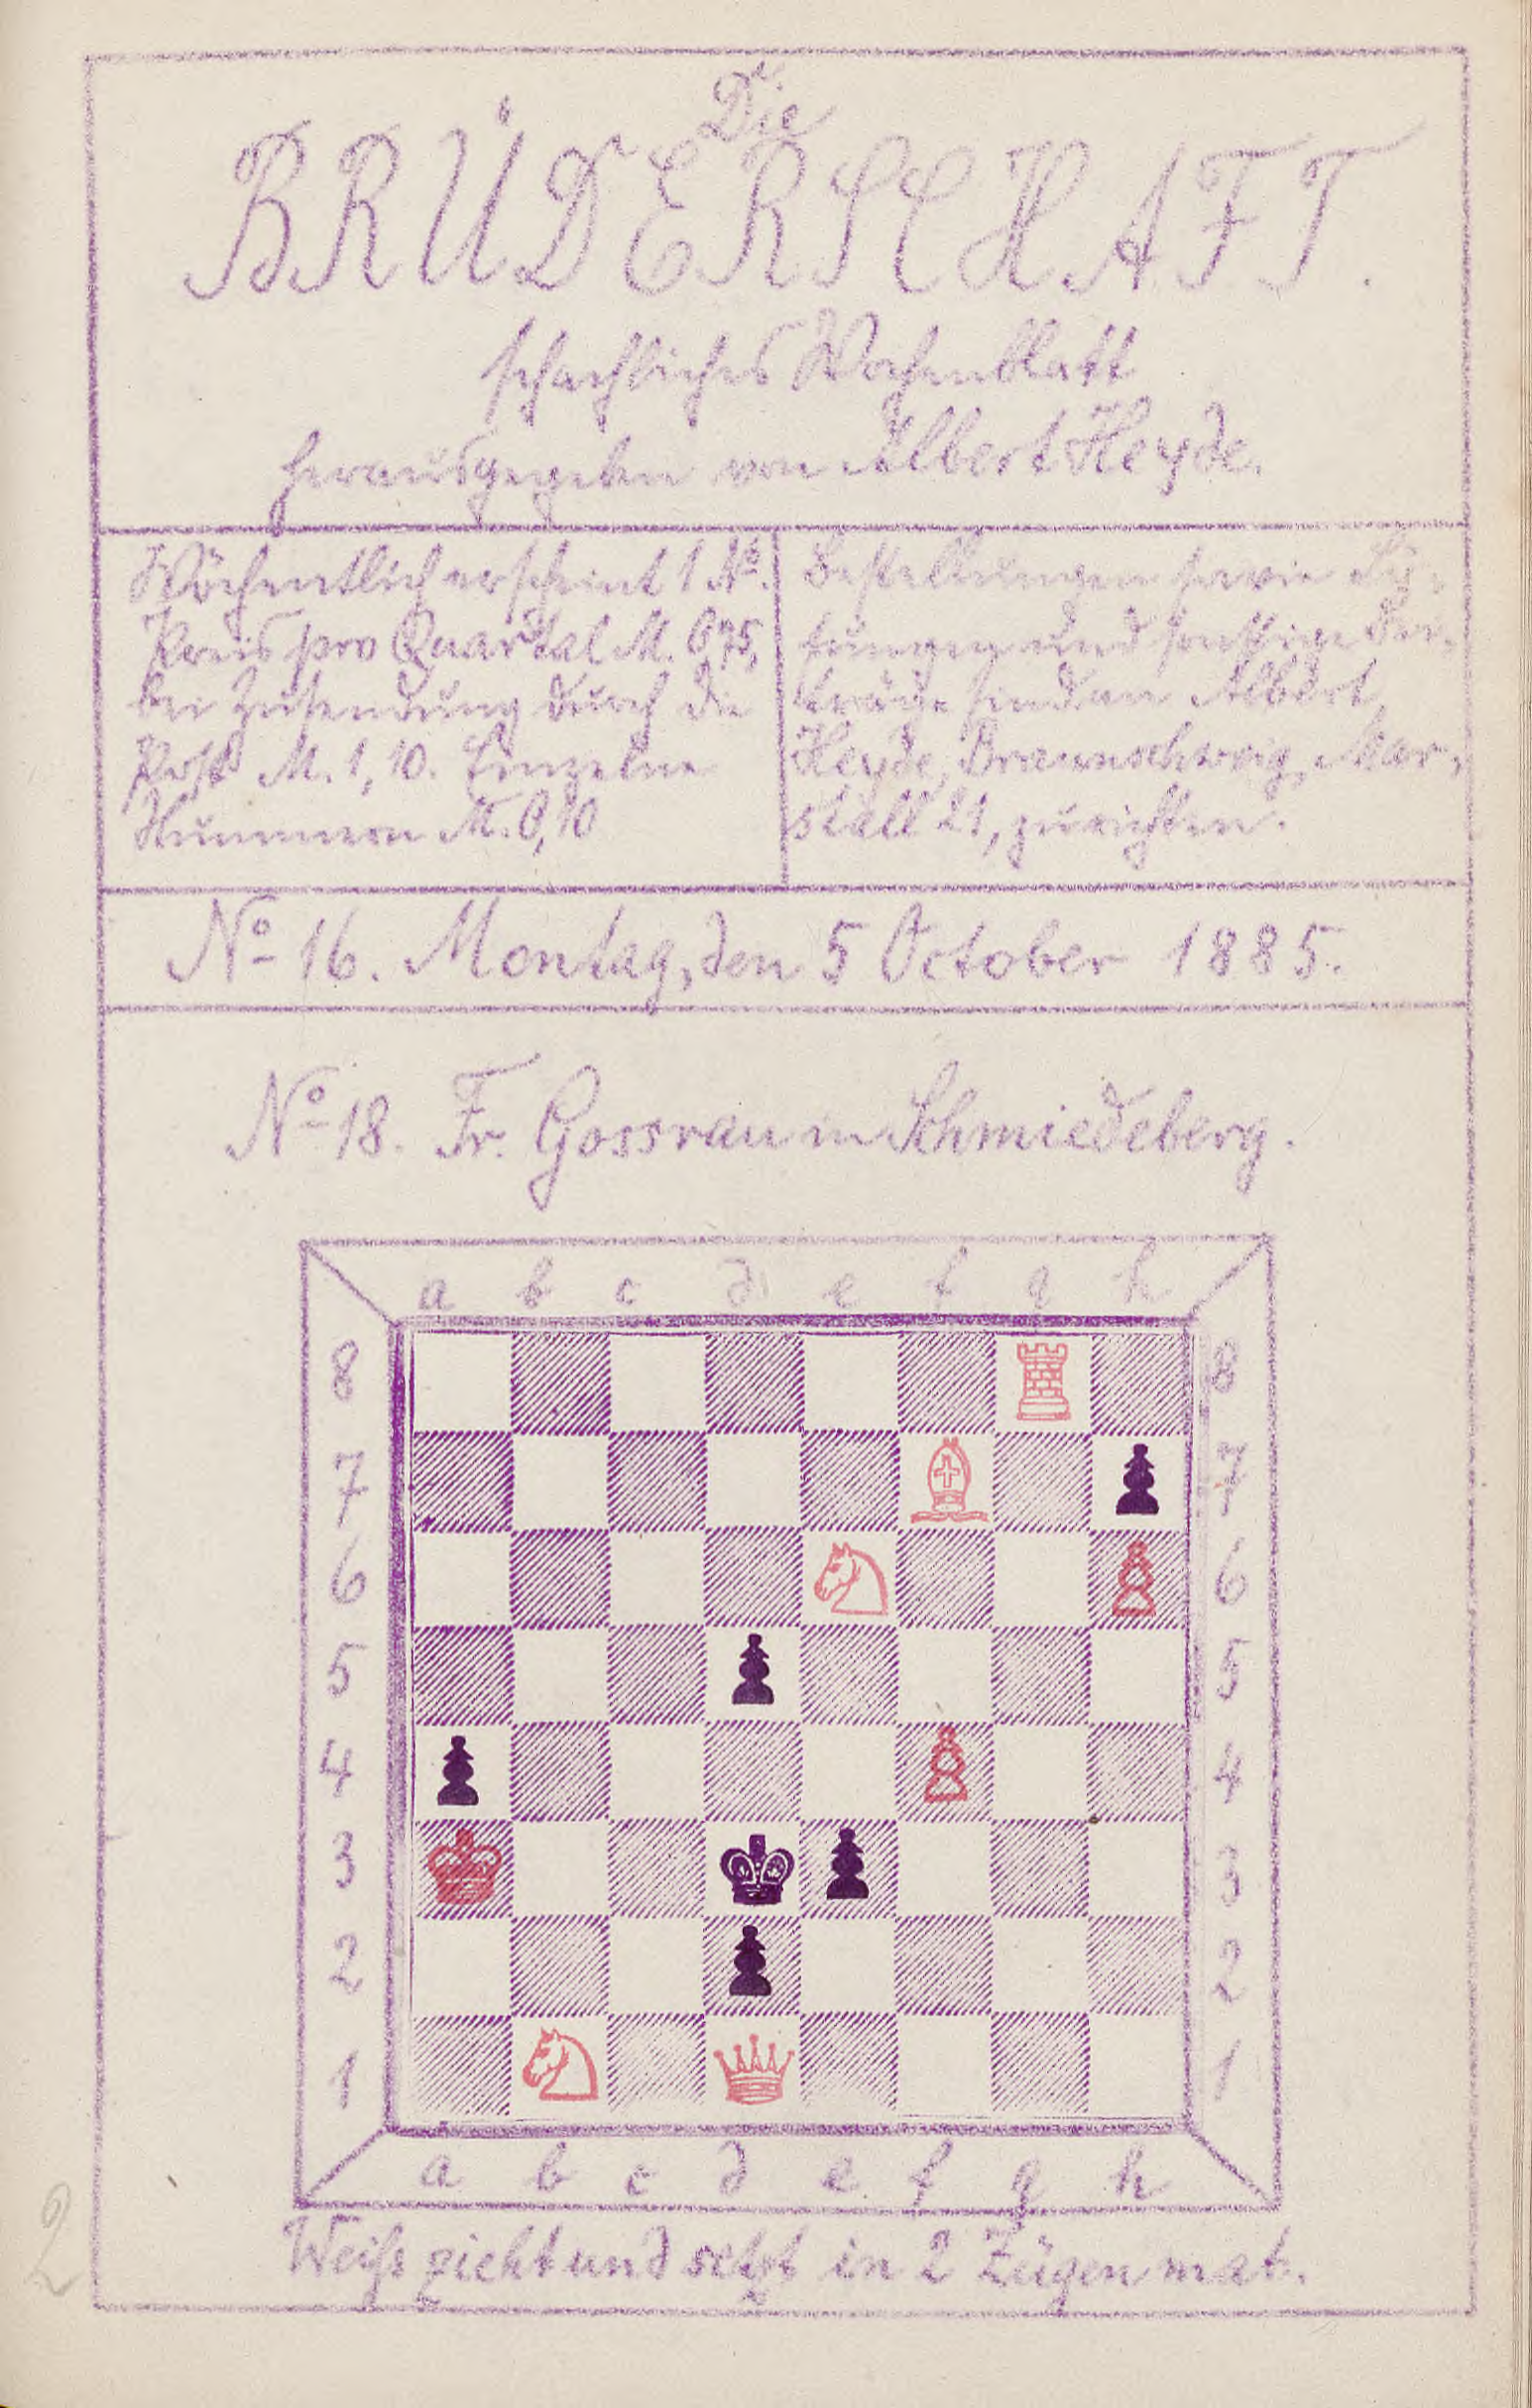 Die
BRÜDERSCHAFT.
schachliches Wochenblatt
herausgegeben von Albert Heyde.
Wöchentlich erscheint 1 No.
Preis pro Quartal M. 0,75,
bei Zusendung durch die
Post M. 1,10. Einzelne
Nummern M. 0,10
Bestellungen sowie Lö-
sungen und sonstige Bei-
träge sind an Albert
Heyde, Braunschweig, Mar-
stall 21, zu richten.
No 16. Montag, den 5 October 1885.
No 18. Fr. Gossrau in Schmiedeberg.
a b c d e f g h
8 8
7 7
6 6
5 5
4 4
3 3
2 2
1 1
a b c d e f g h
Weiß zieht und setzt in 2 Zügen mat.
2